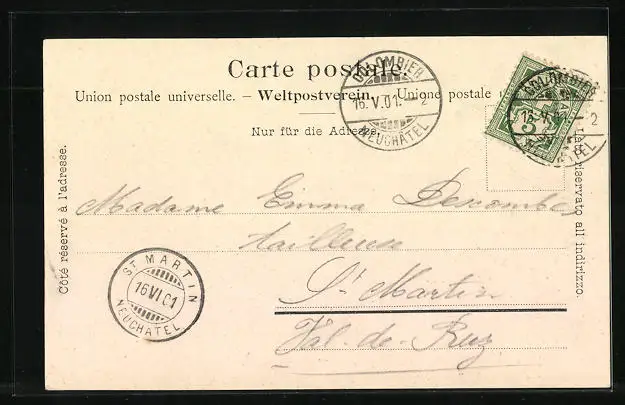 Carte postale.
Union postale universelle. – Weltpostverein. – Unione postale
Nur für die Adresse.
Côté réservé à l'adresse.
COLOMBIER
16.V.01.–2
NEUCHÂTEL
COLOMBIER
16.V.01.–2
5
Lato riservato all indirizzo.
Madame Emma Descombes
Tailleuse
St Martin
Val-de-Ruz
ST MARTIN
16 VI 01
NEUCHATEL